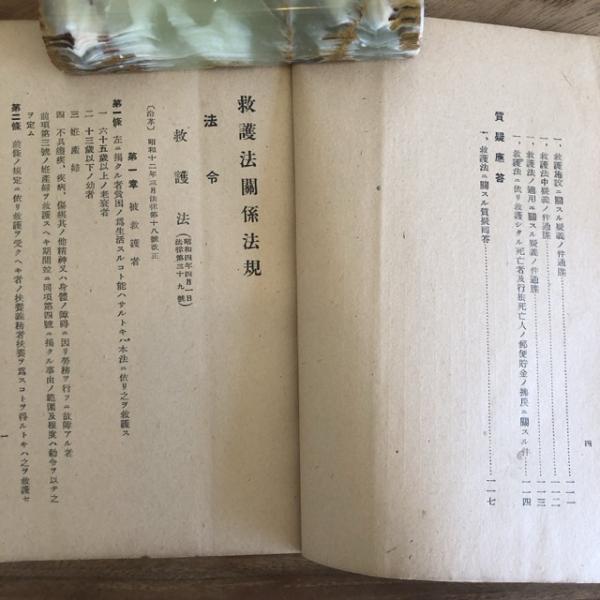 一、救護施設ニ關スル疑義ノ件通牒……一一一
一、救護法中疑義ノ件通牒……一一二
一、救護法ノ適用ニ關スル疑義ノ件通牒……一一三
一、救護法ニ依リ救護シタル死亡者及行旅死亡人ノ郵便貯金ノ拂戾ニ關スル件……一一四
質疑應答
一、救護法ニ關スル質疑回答……一一七
四
救護法關係法規
法令
救護法(昭和四年四月一日法律第三十九號)
〔沿革〕昭和十二年三月法律第十八號改正
第一章 被救護者
第一條 左ニ揭クル者貧困ノ爲生活スルコト能ハサルトキハ本法ニ依リ之ヲ救護ス
一 六十五歲以上ノ老衰者
二 十三歲以下ノ幼者
三 姙產婦
四 不具癈疾、疾病、傷痍其ノ他精神又ハ身體ノ障碍ニ因リ勞務ヲ行フニ故障アル者
前項第三號ノ姙產婦ヲ救護スヘキ期間竝ニ同項第四號ニ揭クル事由ノ範圍及程度ハ勅令ヲ以テ之
ヲ定ム
第二條 前條ノ規定ニ依リ救護ヲ受クヘキ者ノ扶養義務者扶養ヲ爲スコトヲ得ルトキハ之ヲ救護セ
一